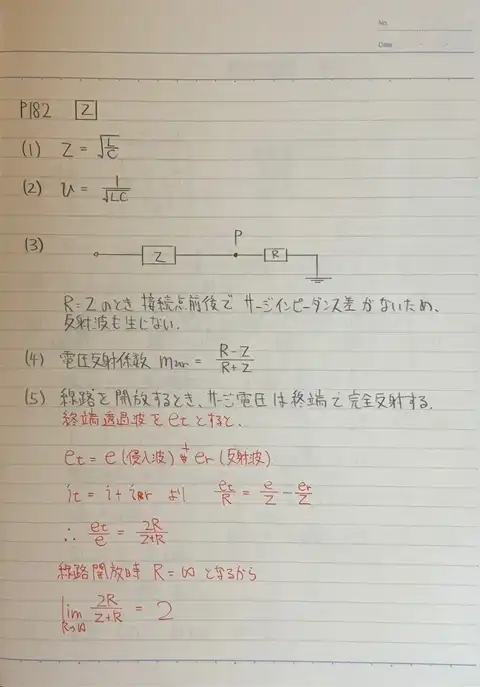 No.
Date
P182 [2]
(1) Z = √(L/C)
(2) u = 1/√LC
(3)
P
Z R
R=Zのとき接続点前後でサージインピーダンス差がないため、
反射波も生じない.
(4) 電圧反射係数 mur = (R-Z)/(R+Z)
(5) 線路を開放するとき、サージ電圧は終端で完全反射する.
終端透過波をetとすると、
et = e (侵入波) + er (反射波)
it = i + ir より et/R = e/Z - er/Z
∴ et/e = 2R/(Z+R)
線路開放時 R = ∞ となるから
lim R→∞ 2R/(Z+R) = 2